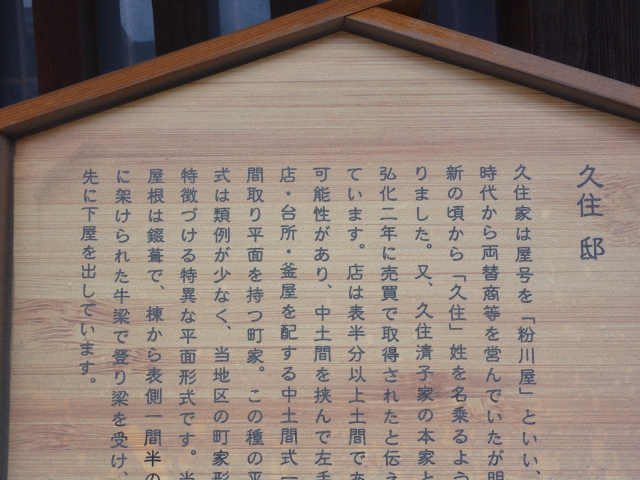 久住 邸
久住家は屋号を「粉川屋」といい、
時代から両替商等を営んでいたが明
新の頃から「久住」姓を名乗るよう
りました。又、久住清子家の本家と
弘化二年に売買で取得されたと伝え
ています。店は表半分以上土間であ
可能性があり、中土間を挟んで左手
店・台所・釜屋を配する中土間式一
間取り平面を持つ町家。この種の平
式は類例が少なく、当地区の町家形
特徴づける特異な平面形式です。当
屋根は錣葺で、棟から表側一間半の
に架けられた牛梁で登り梁を受け、
先に下屋を出しています。